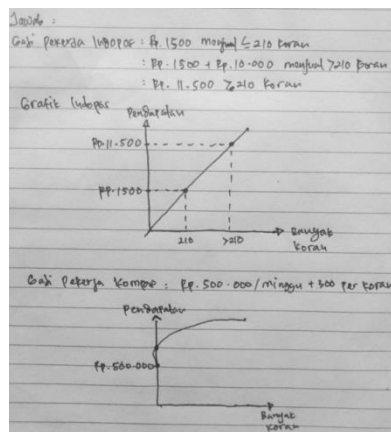 Jawab :
Gaji Pekerja Indopos : Rp. 1500 menjual ≤ 210 koran
: Rp. 1500 + Rp. 10.000 menjual >210 koran
: Rp. 11.500 ≥ 210 koran
Grafik Indopos
Pendapatan
Rp. 11.500
Rp. 1500
210
>210
Banyak
koran
Gaji Pekerja Kompas : Rp. 500.000/minggu + 300 per koran
Pendapatan
Rp. 500.000
Banyak
koran